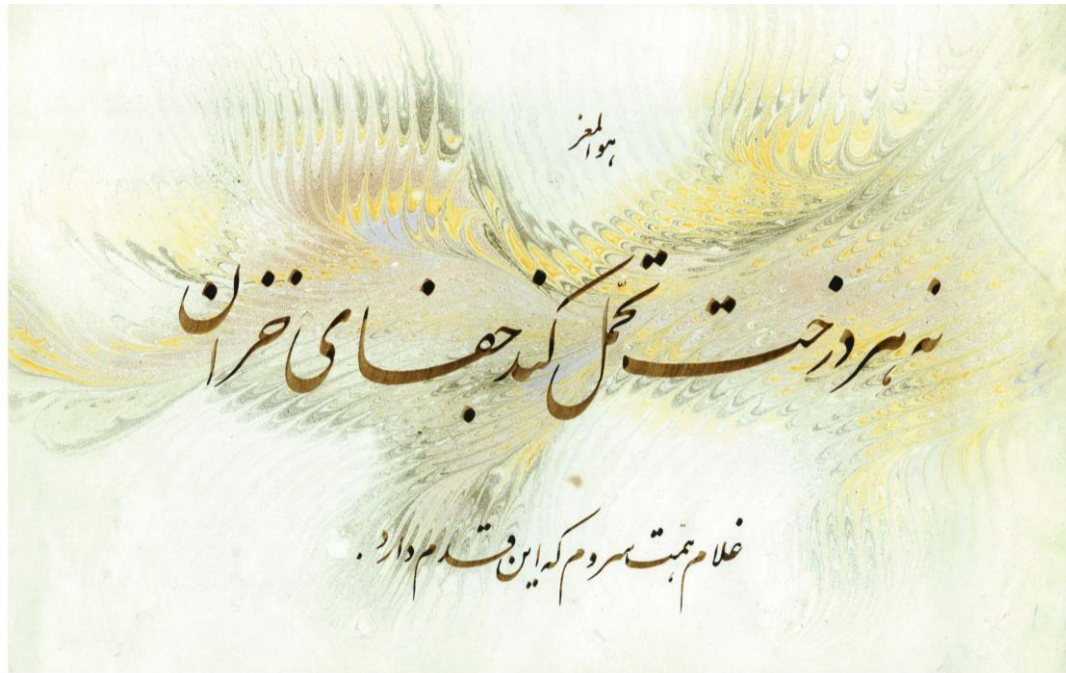 هوالمعز
نه هر درخت تحمّل کند جفای خزان
غلام همّت سروم که این قدم دارد .